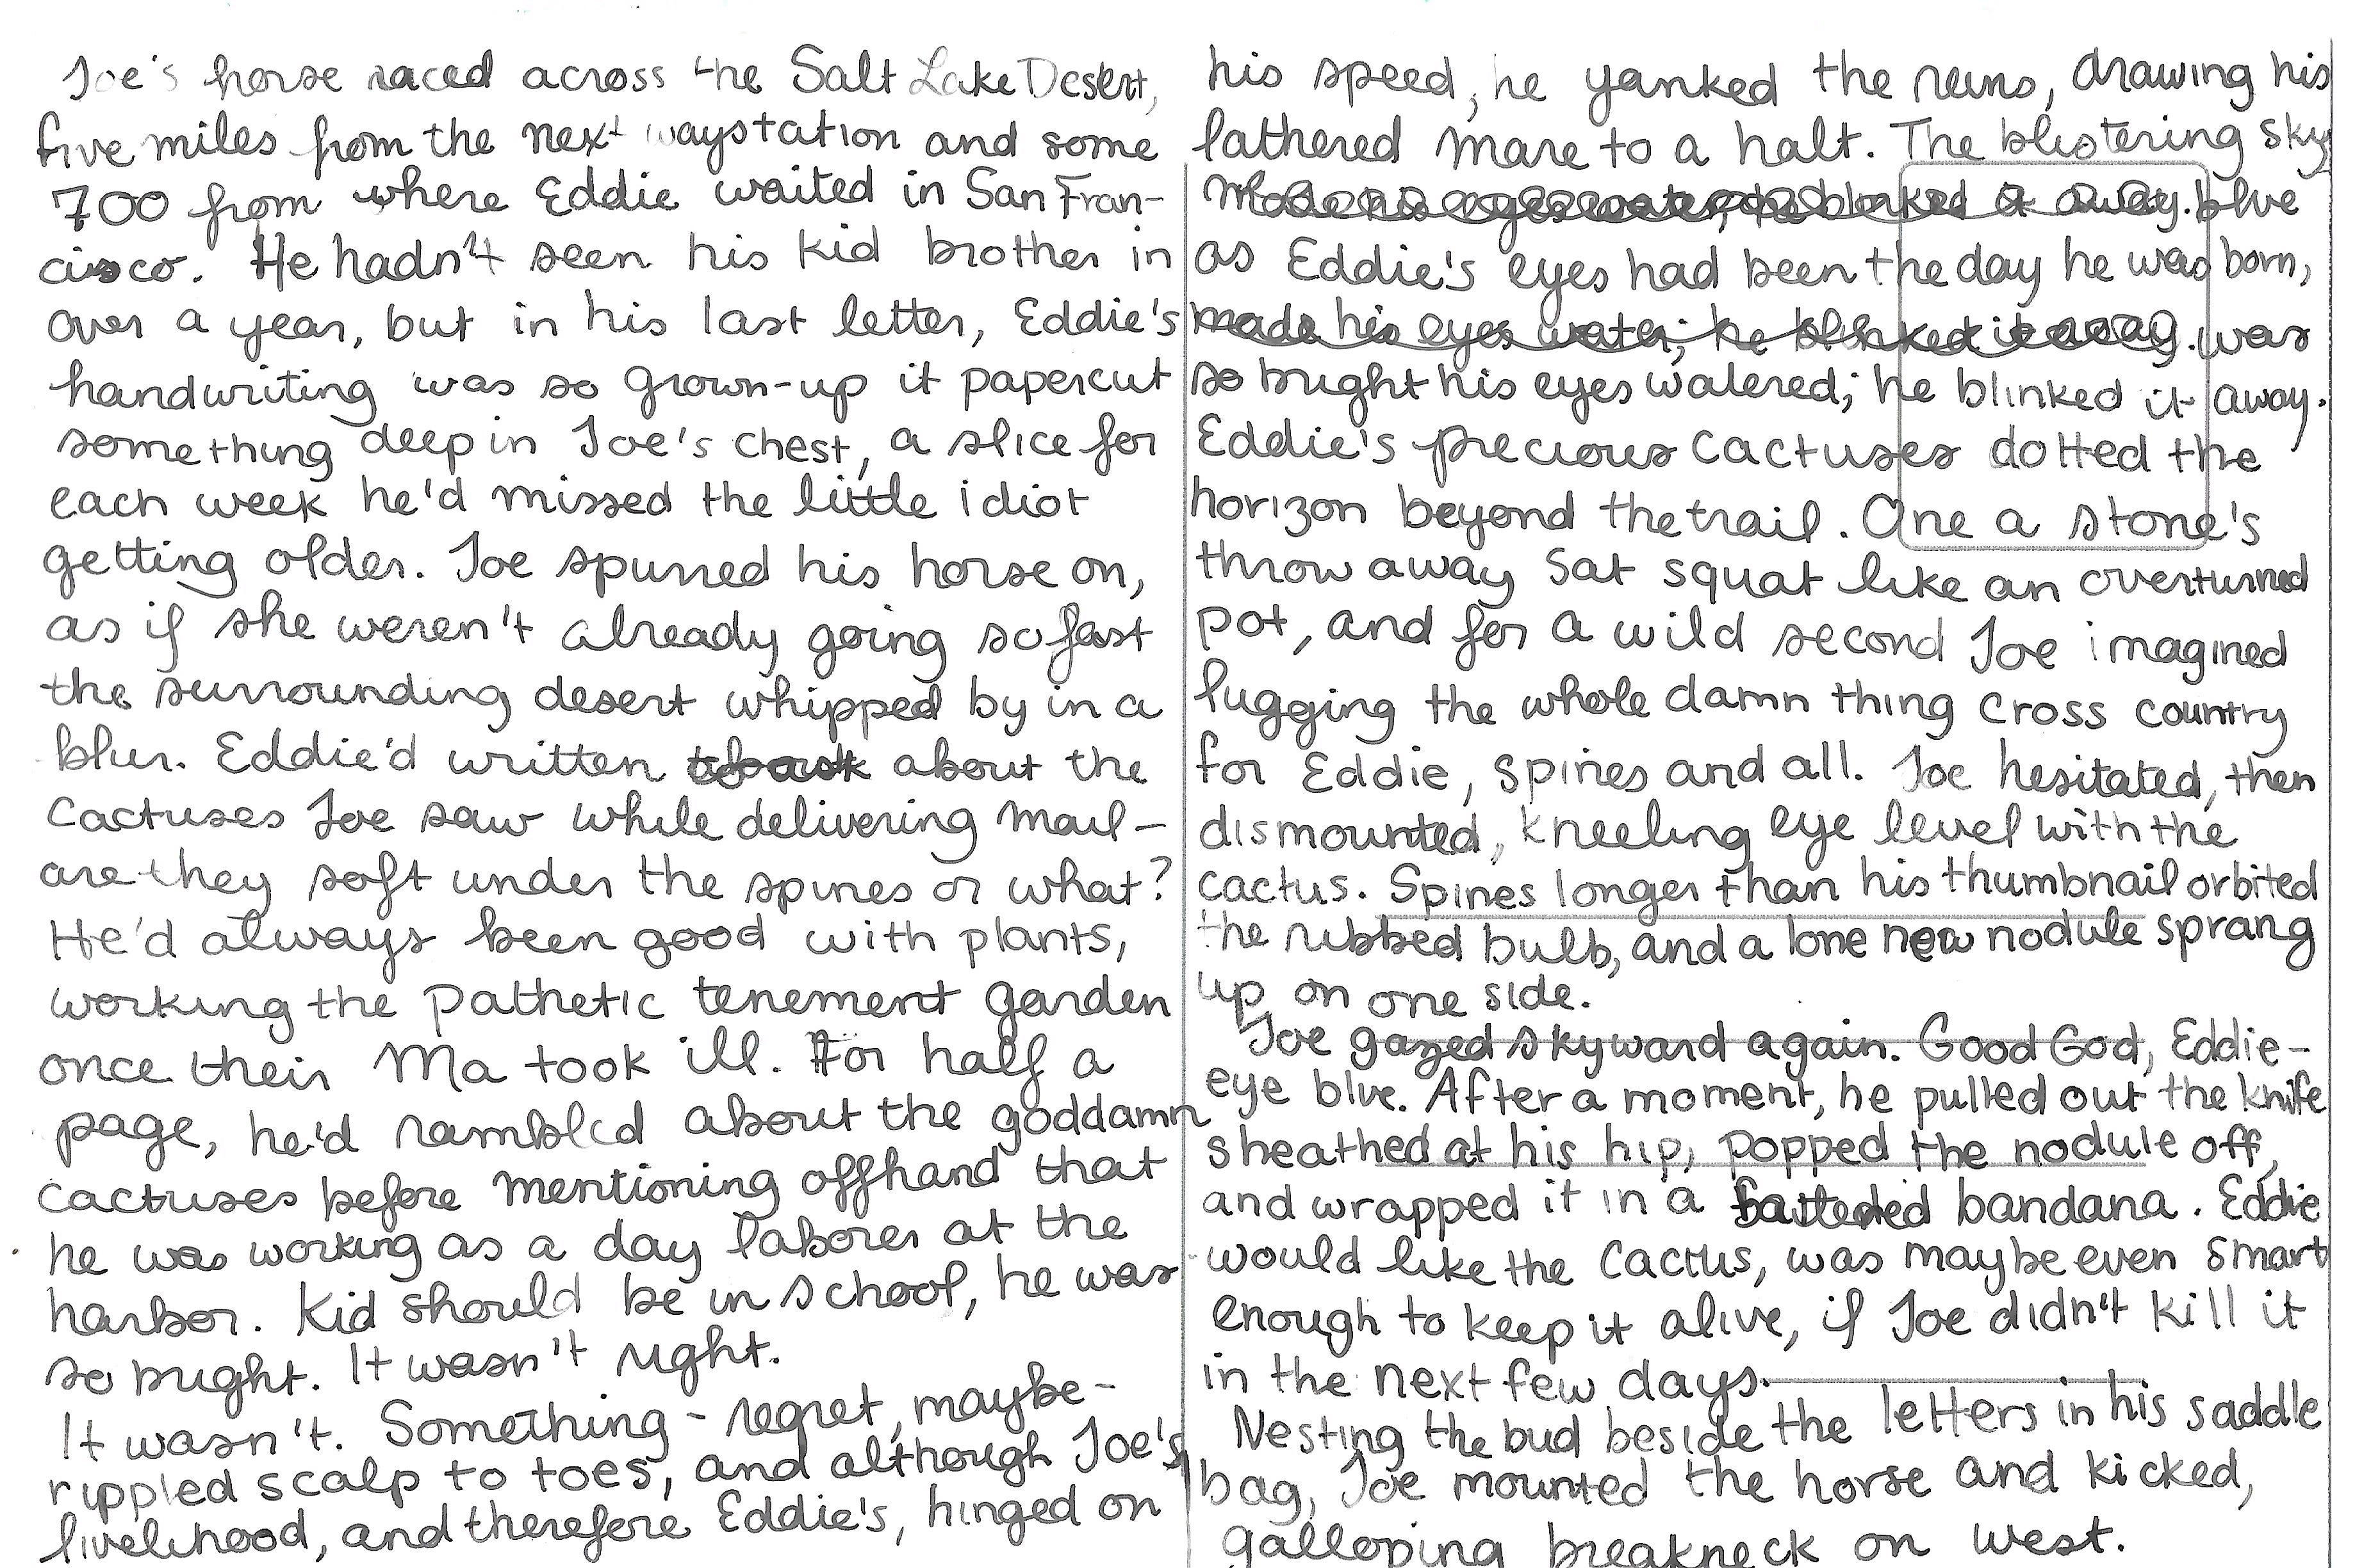 Joe's horse raced across the Salt Lake Desert,
five miles from the next waystation and some
700 from where Eddie waited in San Fran-
cisco. He hadn't seen his kid brother in
over a year, but in his last letter, Eddie's
handwriting was so grown-up it papercut
something deep in Joe's chest, a slice for
each week he'd missed the little idiot
getting older. Joe spurred his horse on,
as if she weren't already going so fast
the surrounding desert whipped by in a
blur. Eddie'd written about the
cactuses Joe saw while delivering mail-
are they soft under the spines or what?
He'd always been good with plants,
working the pathetic tenement garden
once their Ma took ill. For half a
page, he'd rambled about the goddamn
cactuses before mentioning offhand that
he was working as a day laborer at the
harbor. Kid should be in school, he was
so bright. It wasn't right.
It wasn't. Something - regret, maybe-
rippled scalp to toes, and although Joe's
livelihood, and therefore Eddie's, hinged on
his speed, he yanked the reins, drawing his
lathered mare to a halt. The blistering sky,
made his eyes water, he blinked it away. blue
as Eddie's eyes had been the day he was born,
made his eyes water; he blinked it away. was
so bright his eyes watered; he blinked it away.
Eddie's precious cactuses dotted the
horizon beyond the trail. One a stone's
throw away sat squat like an overturned
pot, and for a wild second Joe imagined
lugging the whole damn thing cross country
for Eddie, spines and all. Joe hesitated, then
dismounted, kneeling eye level with the
cactus. Spines longer than his thumbnail orbited
the ribbed bulb, and a lone new nodule sprang
up on one side.
Joe gazed skyward again. Good God, Eddie-
eye blue. After a moment, he pulled out the knife
sheathed at his hip, popped the nodule off,
and wrapped it in a bandana. Eddie
would like the cactus, was maybe even smart
enough to keep it alive, if Joe didn't kill it
in the next few days.
Nesting the bud beside the letters in his saddle
bag, Joe mounted the horse and kicked,
galloping breakneck on west.